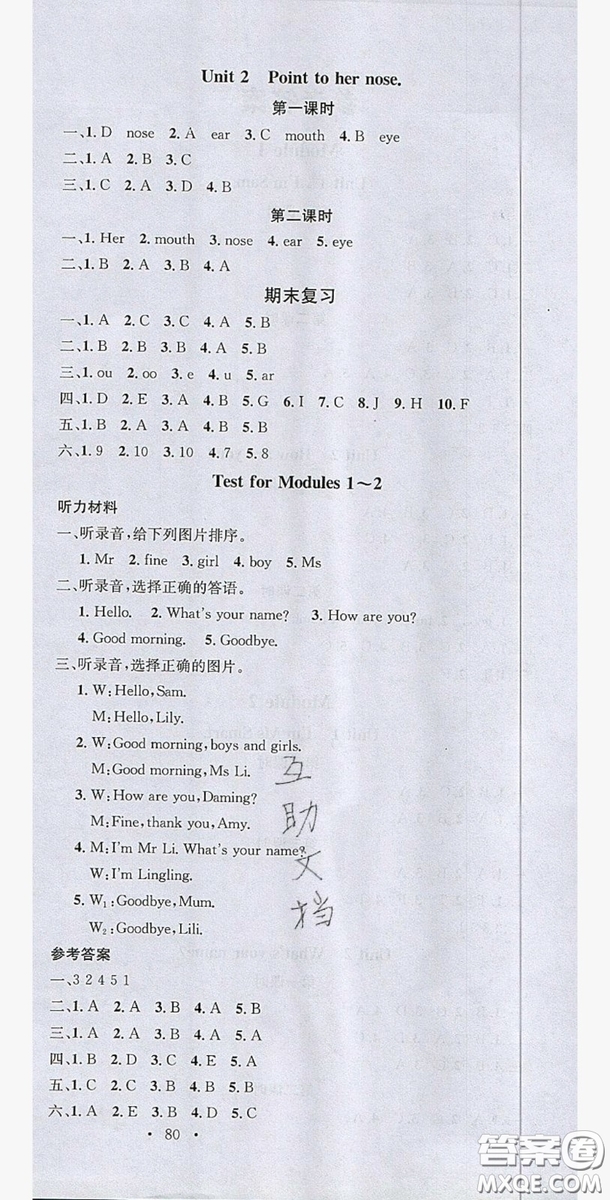 Unit 2 Point to her nose.
第一课时
一、1. D nose 2. A ear 3. C mouth 4. B eye
二、1. A 2. B 3. C
三、1. C 2. A 3. D 4. B
第二课时
一、1. Her 2. mouth 3. nose 4. ear 5. eye
二、1. B 2. A 3. B 4. A
期末复习
一、1. A 2. C 3. C 4. A 5. B
二、1. B 2. B 3. A 4. A 5. B
三、1. ou 2. oo 3. e 4. u 5. ar
四、1. D 2. E 3. A 4. B 5. G 6. I 7. C 8. J 9. H 10. F
五、1. B 2. A 3. B 4. A 5. B
六、1. 9 2. 10 3. 10 4. 7 5. 8
Test for Modules 1～2
听力材料
一、听录音,给下列图片排序。
1. Mr 2. fine 3. girl 4. boy 5. Ms
二、听录音,选择正确的答语。
1. Hello. 2. What's your name? 3. How are you?
4. Good morning. 5. Goodbye.
三、听录音,选择正确的图片。
1. W: Hello, Sam.
M: Hello, Lily.
2. W: Good morning, boys and girls.
M: Good morning, Ms Li.
3. W: How are you, Daming?
M: Fine, thank you, Amy.
4. M: I'm Mr Li. What's your name?
W: I'm Lingling.
5. W₁: Goodbye, Mum.
W₂: Goodbye, Lili.
互助文档
参考答案
一、3 2 4 5 1
二、1. A 2. A 3. B 4. A 5. B
三、1. B 2. A 3. B 4. A 5. B
四、1. B 2. B 3. A 4. B 5. A
五、1. C 2. C 3. B 4. B 5. C
六、1. A 2. E 3. D 4. C 5. B
• 80 •
答案圈
MXQE.COM